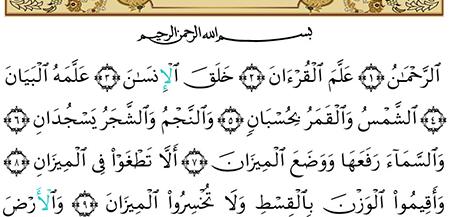 بسم الله الرحمن الرحيم
ٱلرَّحْمَـٰنُ ﴿١﴾ عَلَّمَ ٱلْقُرْءَانَ ﴿٢﴾ خَلَقَ ٱلْإِنسَـٰنَ ﴿٣﴾ عَلَّمَهُ ٱلْبَيَانَ
﴿٤﴾ ٱلشَّمْسُ وَٱلْقَمَرُ بِحُسْبَانٍ ﴿٥﴾ وَٱلنَّجْمُ وَٱلشَّجَرُ يَسْجُدَانِ ﴿٦﴾
وَٱلسَّمَآءَ رَفَعَهَا وَوَضَعَ ٱلْمِيزَانَ ﴿٧﴾ أَلَّا تَطْغَوْا۟ فِى ٱلْمِيزَانِ ﴿٨﴾
وَأَقِيمُوا۟ ٱلْوَزْنَ بِٱلْقِسْطِ وَلَا تُخْسِرُوا۟ ٱلْمِيزَانَ ﴿٩﴾ وَٱلْأَرْضَ